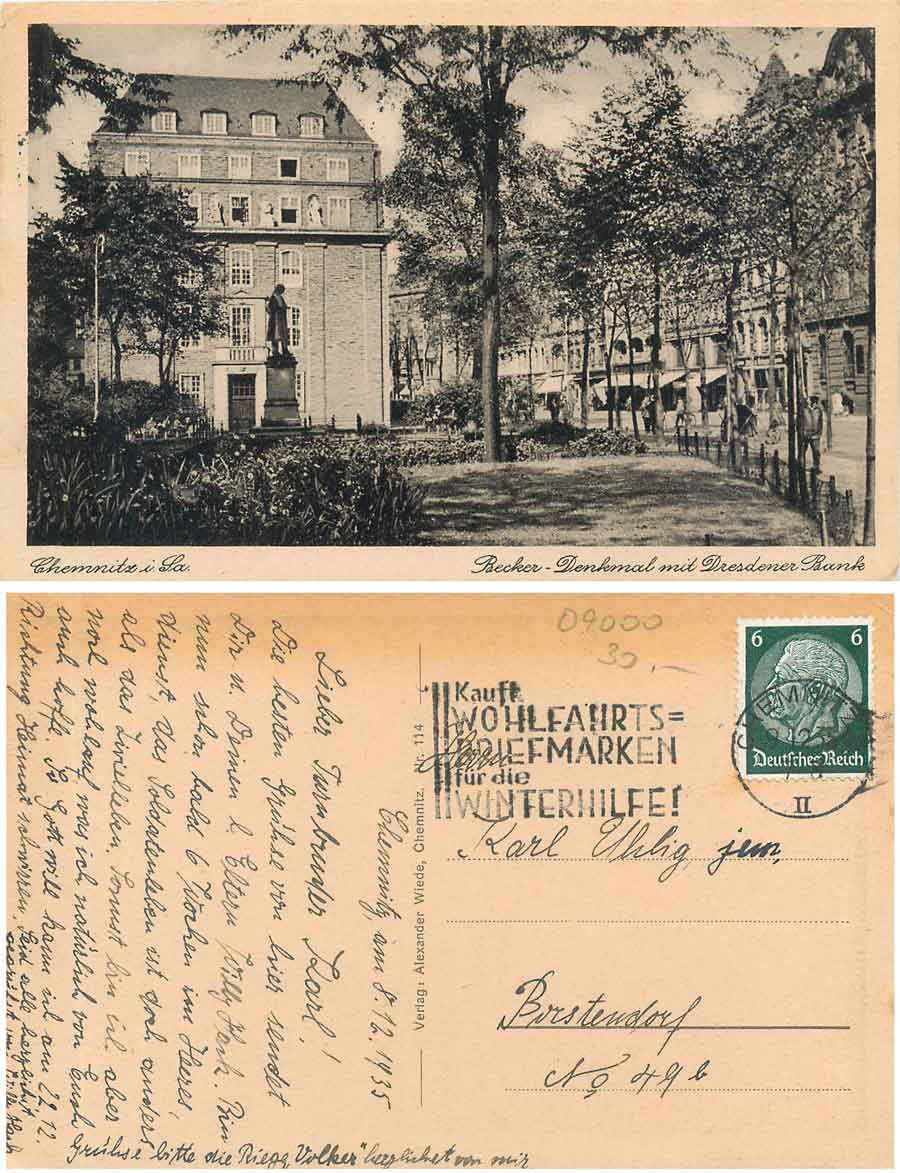 Chemnitz i. Sa.
Becker-Denkmal mit Dresdener Bank
09000
30,—
6 6
Deutsches Reich
Kauft
WOHLFAHRTS=
BRIEFMARKEN
für die
WINTERHILFE!
II
Herrn
Karl Uhlig, jun,
Borstendorf
No 49b
Verlag: Alexander Wiede, Chemnitz. Nr. 114
Chemnitz, am 8.12.1935
Lieber Turnbruder Karl!
Die besten Grühse von hier sendet
Dir u. Deinen l. Eltern Willy Bin
nun schon bald 6 Wochen im Heeres,
dienst, das Soldatenleben ist doch anders
als das Zivilleben, Sonnst bin ich aber
noch wohlauf was ich natürlich von Euch
auch hoffe. So Gott will kann ich am 22.12.
Richtung Heimat Seid alle herzlichst
gegrüßt
Grühse bitte die "Volker" herzlichst von mir